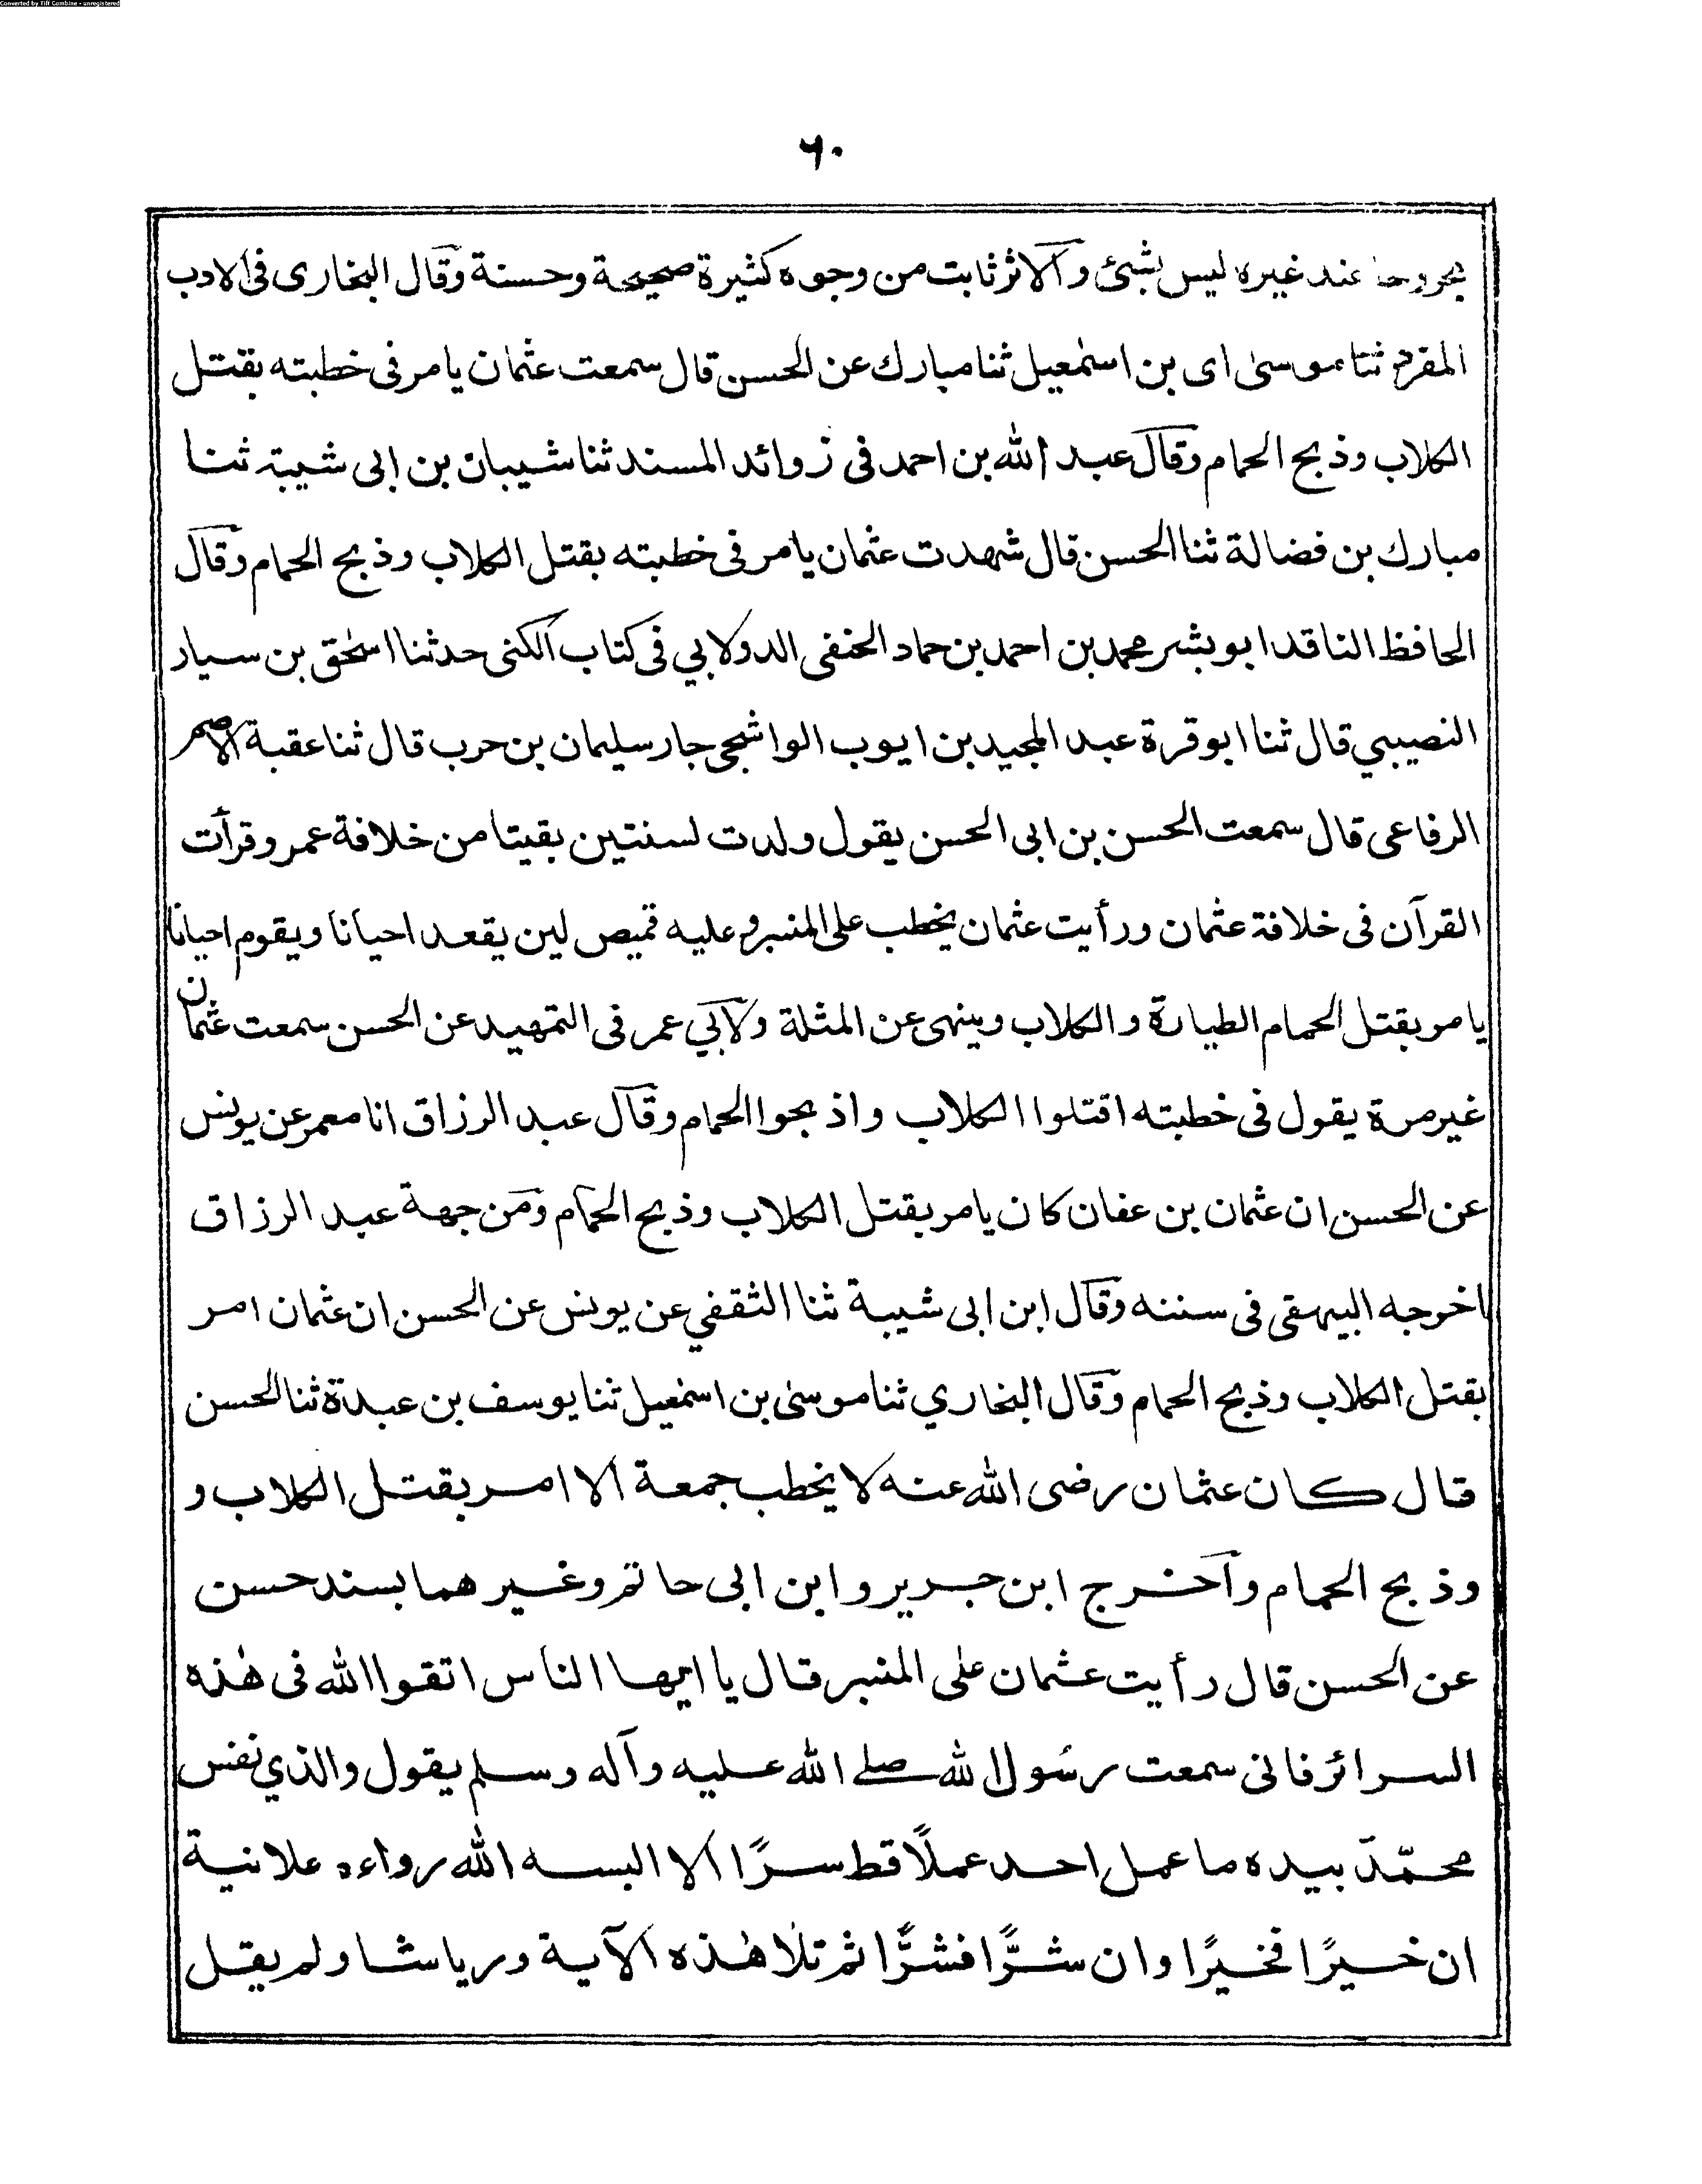 Converted by Tiff Combine - unregistered
٦٠
مجروحا عند غيره ليس بشئ والاثر ثابت من وجوه كثيرة صحيحة وحسنة وقال البخارى فى الادب
المفرد ثنا موسىٰ اى بن اسمٰعيل ثنا مبارك عن الحسن قال سمعت عثمان يامر فى خطبته بقتل
الكلاب وذبح الحمام وقال عبد الله بن احمد فى زوائد المسند ثنا شيبان بن ابى شيبة ثنا
مبارك بن فضالة ثنا الحسن قال شهدت عثمان يامر فى خطبته بقتل الكلاب وذبح الحمام وقال
الحافظ الناقد ابو بشر محمد بن احمد بن حماد الحنفى الدولابي فى كتاب الكنى حدثنا اسحٰق بن سيار
النصيبي قال ثنا ابو قرة عبد المجيد بن ايوب الواشجى جار سليمان بن حرب قال ثنا عقبة الاصم
الرفاعى قال سمعت الحسن بن ابى الحسن يقول ولدت لسنتين بقيتا من خلافة عمر وقرأت
القرآن فى خلافة عثمان ورأيت عثمان يخطب على المنبر وعليه قميص لين يقعد احيانا ويقوم احيانا
يامر بقتل الحمام الطيارة والكلاب وينهى عن المثلة ولابي عمر فى التمهيد عن الحسن سمعت عثمان
غير مرة يقول فى خطبته اقتلوا الكلاب واذبحوا الحمام وقال عبد الرزاق انا معمر عن يونس
عن الحسن ان عثمان بن عفان كان يامر بقتل الكلاب وذبح الحمام ومن جهة عبد الرزاق
اخرجه البيهقى فى سننه وقال ابن ابى شيبة ثنا الثقفي عن يونس عن الحسن ان عثمان امر
بقتل الكلاب وذبح الحمام وقال البخاري ثنا موسىٰ بن اسمٰعيل ثنا يوسف بن عبدة ثنا الحسن
قال كان عثمان رضى الله عنه لا يخطب جمعة الا امر بقتل الكلاب و
وذبح الحمام وآخرج ابن جرير وابن ابى حاتم وغيرهما بسند حسن
عن الحسن قال رأيت عثمان على المنبر قال يا ايها الناس اتقوا الله فى هٰذه
السرائر فانى سمعت رسُول الله صلے الله عليه وآله وسلم يقول والذي نفس
محمّد بيده ما عمل احد عملًا قط سرًا الا البسه الله رواءه علانية
ان خيرًا فخيرًا وان شرًّا فشرًّا ثم تلا هٰذه الآية ورياشا ولم يقل